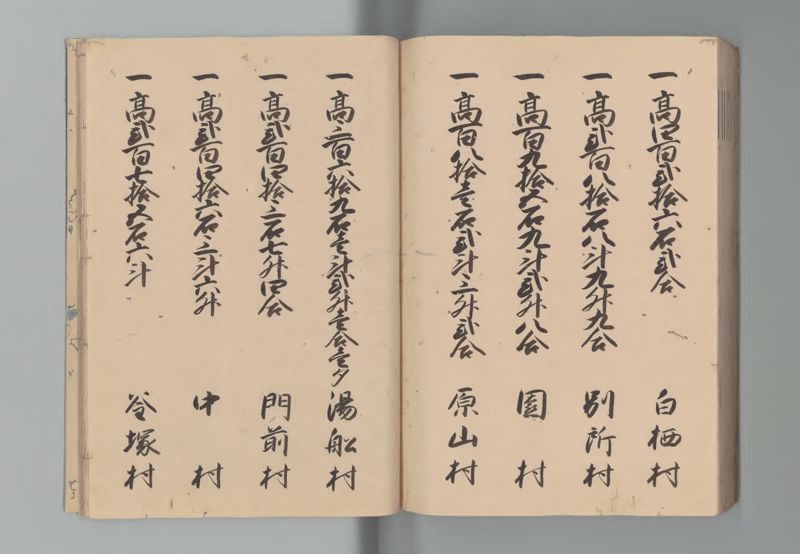 一高四百弐拾六石弐合 白栖村
一高弐百八拾石八斗九升九合 別所村
一高百九拾五石九斗弐升八合 園村
一高百八拾壱石弐斗三升弐合 原山村
一高三百六拾九石壱斗弐升壱合壱夕 湯船村
一高弐百四拾三石七升四合 門前村
一高弐百四拾六石三斗六升 中村
一高弐百七拾五石六斗 釜塚村